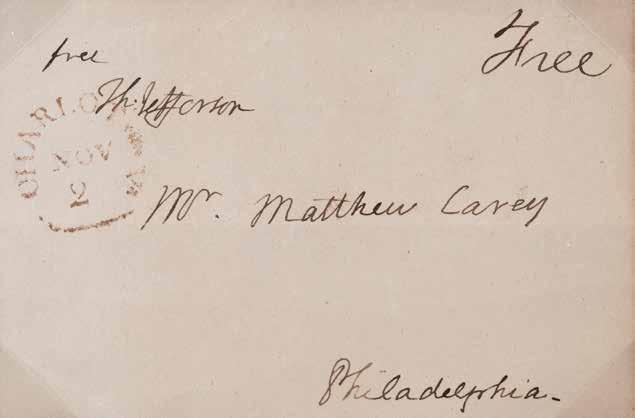 free
Free
Th: Jefferson
CHARLO
NOV
2
Mr. Matthew Carey
Philadelphia-